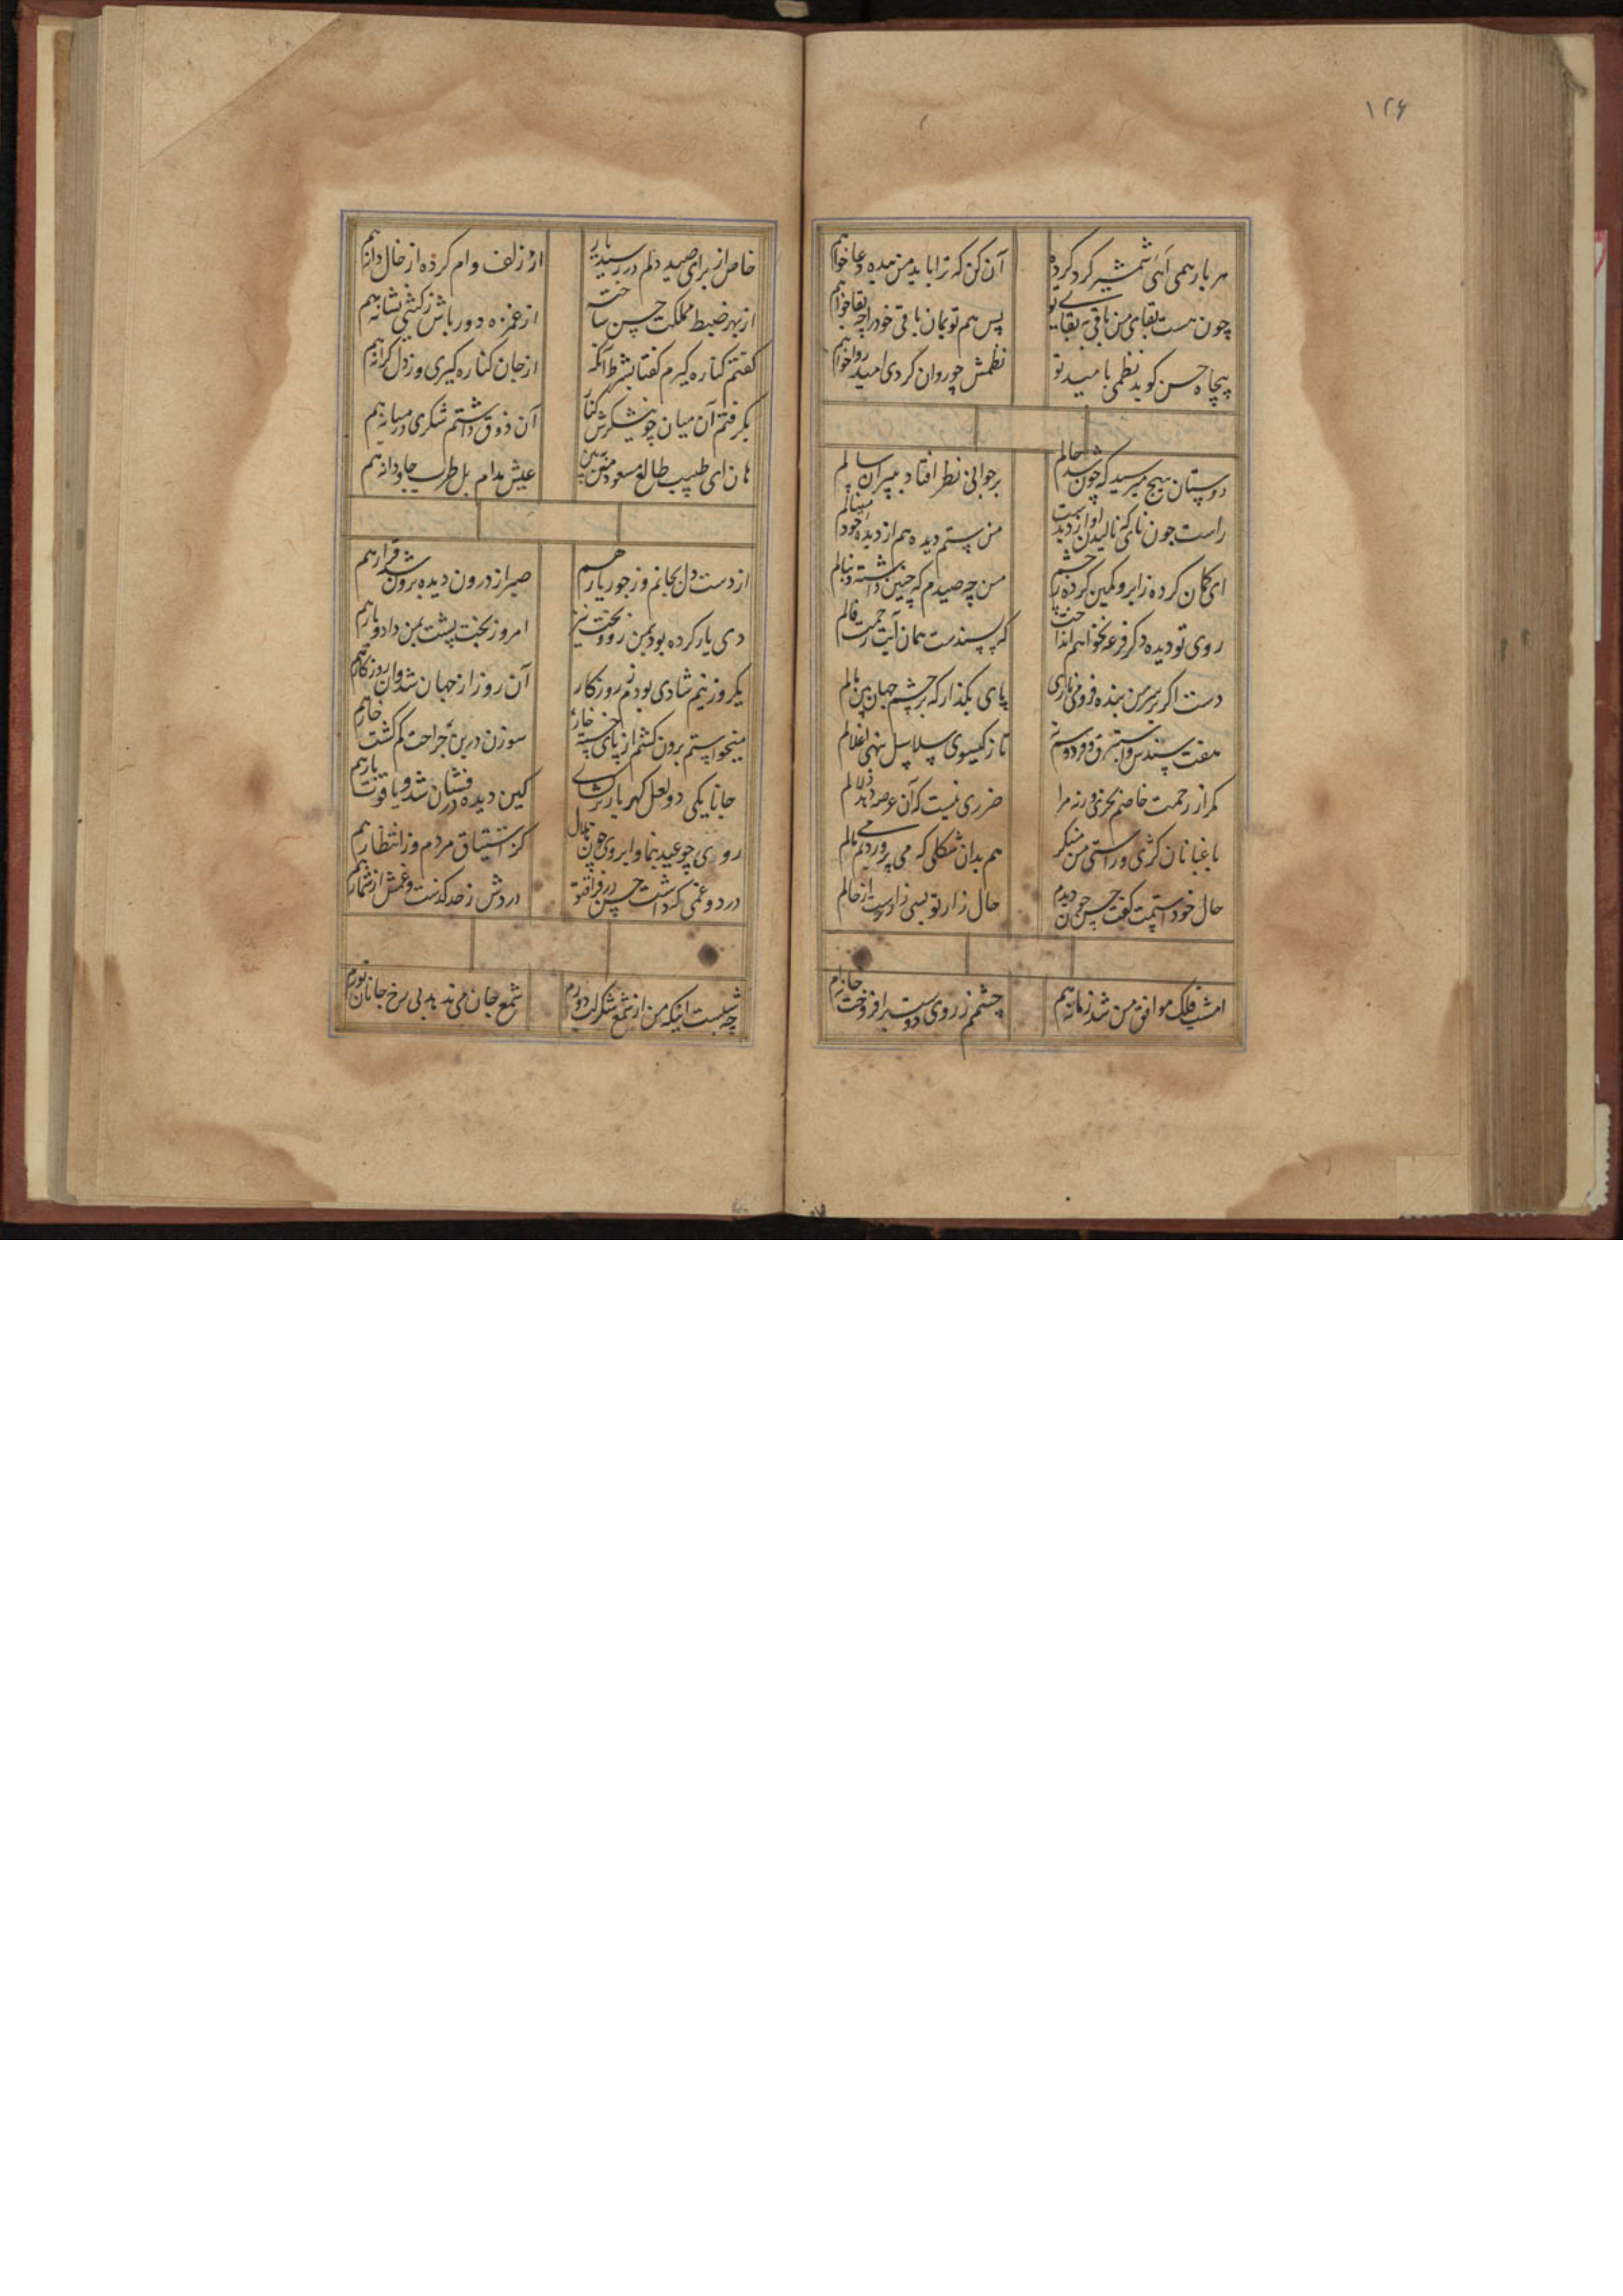 ۱۲۶
هر بار همی آهی شمشیر کرد کرده آن کن که ترا باید من میده دعا خواهم
چون هست بقای من باقی به بقای تو پس هم تو بمان باقی خود را چه بقا خواهم
بیچاره حسن کوید نظمی بامید تو نظمش چو روان کردی امید روا خواهم
دوستان هیچ مپرسید که چون شد حالم بر جوانی نظر افتاد بپیران سالم
راست چون نای که نالیدن او از دست من ستم دیده هم از دیده خود مینالم
ای کمان کرده ز ابرو و کمین کرده ز چشم من چه صیدم که چنین داشته دنبالم
روی تو دیده دکر قرعه نخواهم انداخت که پسندست همان آیت رحمت فالم
دست اکر بر سر من بنده فرو می ناری پای بکذار که بر چشم جهان بین مالم
تا ز کیسوی سلاسل بنهی اغلالم
مکر از رحمت خاصم بخری ورنه مرا ضرری نیست که آن عرصه دهد دلالم
باغبانان کژی و راستی من منکر هم بدان شکلی که می پروردیم می بالم
حال خود داشتمت کفت حسن چون دیدم حال زار تو بسی زارترست از حالم
امشب فلک موافق من شد زمانه هم چشمم ز روی دوست برافروخت خانه هم
خاص از برای صید دلم در رسید یار از زلف وام کرده از خال دانه هم
از بهر ضبط مملکت حسن ساخته از غمزه دور باش ز کیتی نشانه هم
کفتم کناره کیرم کفتا بشرط آنکه از جان کناره کیری وز دل کرانه هم
بکرفتم آن میان چو نیشکرش کنار آن ذوق داشتم شکری در میانه هم
هان ای طبیب طالع مسعود من ببین عیش مدام بل طرب جاودانه هم
از دست دل بجانم وز جور یار هم صبر از درون دیده برون شد قرار هم
دی یار کرده بود بمن رو و بخت نیز امروز بخت پشت بمن داد و یار هم
یکروز نیم شادی بودم ز روزکار آن روز از جهان شد و آن روزکار هم
میخواستم برون کشم از پای خسته خار سوزن درین جراحت کم کشت خار هم
جانا یکی دو لعل کهربار برکشای کین دیده در فشان شد و یاقوت بار هم
روی چو عید بنما و ابروی چون هلال کز اشتیاق مردم وز انتظار هم
درد و غمی که داشت حسن در فراق تو دردش ز حد کذشت و غمش از شمار هم
چه شبست اینکه من از شمع شکر لب دورم شمع جان می ندهد بی رخ جانان نورم